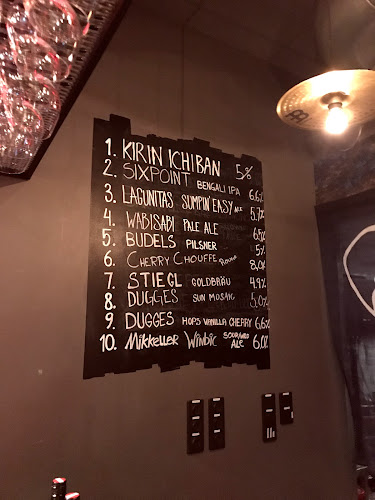 1. KIRIN ICHIBAN 5%
2. SIXPOINT BENGALI IPA 6.6%
3. LAGUNITAS SUMPIN' EASY ALE 5.7%
4. WABISABI PALE ALE 6.5%
5. BUDELS PILSNER 5%
6. CHERRY CHOUFFE ROUGE 8,0%
7. STIEGL GOLDBRÄU 4.9%
8. DUGGES SUN MOSAIC 5.0%
9. DUGGES HOPS VANILLA CHERRY 6.6%
10. Mikkeller Winbic SOUR/WILD ALE 6.0%